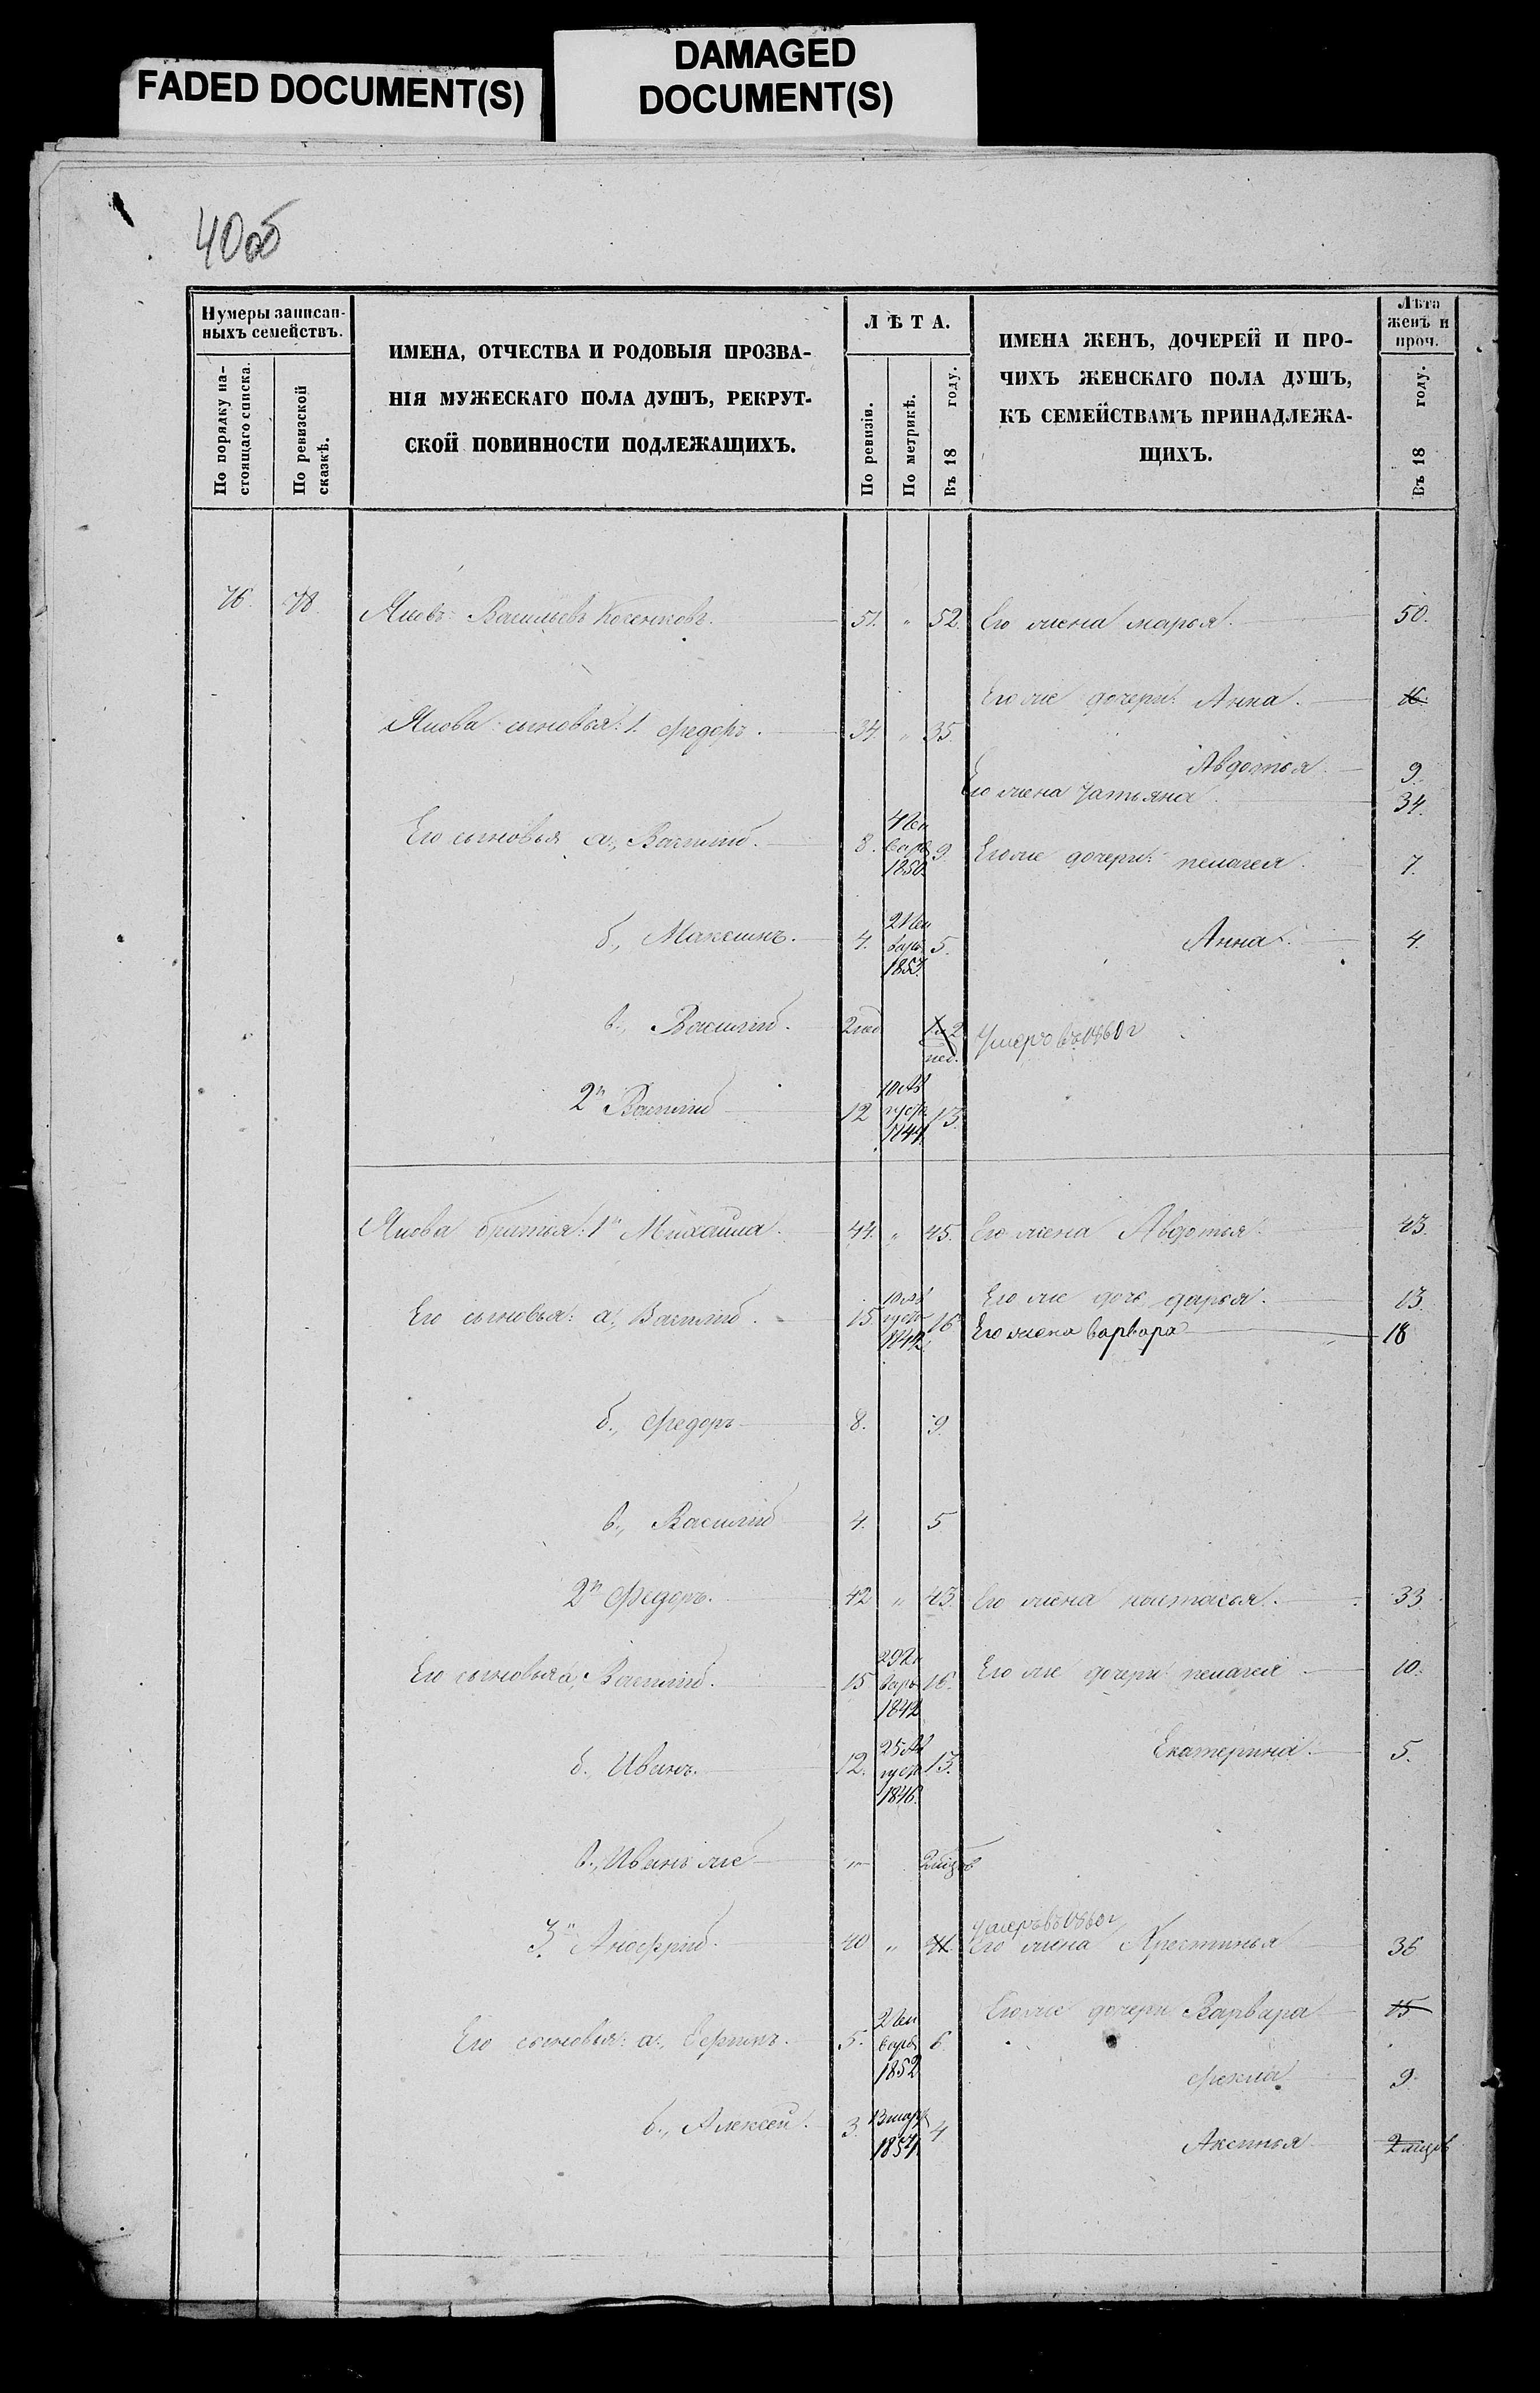 FADED DOCUMENT(S)
DAMAGED
DOCUMENT(S)
40об
Нумеры записан-
ныхъ семействъ.
По порядку на-
стоящаго списка.
По ревизской
сказкѣ.
ИМЕНА, ОТЧЕСТВА И РОДОВЫЯ ПРОЗВА-
НІЯ МУЖЕСКАГО ПОЛА ДУШЪ, РЕКРУТ-
СКОЙ ПОВИННОСТИ ПОДЛЕЖАЩИХЪ.
ЛѢТА.
По ревизіи.
По метрикѣ.
Въ 18 году.
ИМЕНА ЖЕНЪ, ДОЧЕРЕЙ И ПРО-
ЧИХЪ ЖЕНСКАГО ПОЛА ДУШЪ,
КЪ СЕМЕЙСТВАМЪ ПРИНАДЛЕЖА-
ЩИХЪ.
Лѣта
женъ и
проч.
Въ 18 году.
76. 78 Яковъ Васильевъ 51. " 52. Его жена марья. 50.
Его же дочери: Анна. 16.
Якова сыновья: 1. Федоръ. 34. " 35.
Авдотья 9.
Его жена Татьяна. 34.
Его сыновья а., Василій. 8. 4 Ген
варя 1850. 9. Его же дочери: пелагея 7.
б., Максимъ. 4. 21 Ген
варя 1853. 5. Анна. 4.
в., Василій. 2 нед. Умеръ въ 1860 г
2й Василій 12 10 Ав
густа 1844. 13.
Якова братья: 1й Михайла. 44. " 45. Его жена Авдотья. 43.
Его же дочь дарья. 13.
Его сыновья: а., Василій. 15 10 Ав
густа 1842. 16. Его жена варвара 18
б., Федоръ 8. 9.
в., Василій 4. 5
2й Федоръ. 42 " 43. Его жена настасья. 33
Его сыновья а, Василій. 15 29 Ян
варя 1842 16. Его же дочери пелагея 10.
б., Иванъ. 12. 25 Ав
густа 1846. 13. Екатерина. 5.
в., Иванъ же " 2 мѣсяцовъ
умеръ въ 1860 г
3й Ансфрій. 40 " 41. Его жена Крестинья 36
Его же дочери Варвара 15
Его сыновья: а., 5. 2 Ген
варя 1852 6.
Фекла 9.
б., Алексей. 3. 13 мар
1854. 4
Аксинья 2 мѣсяцовъ